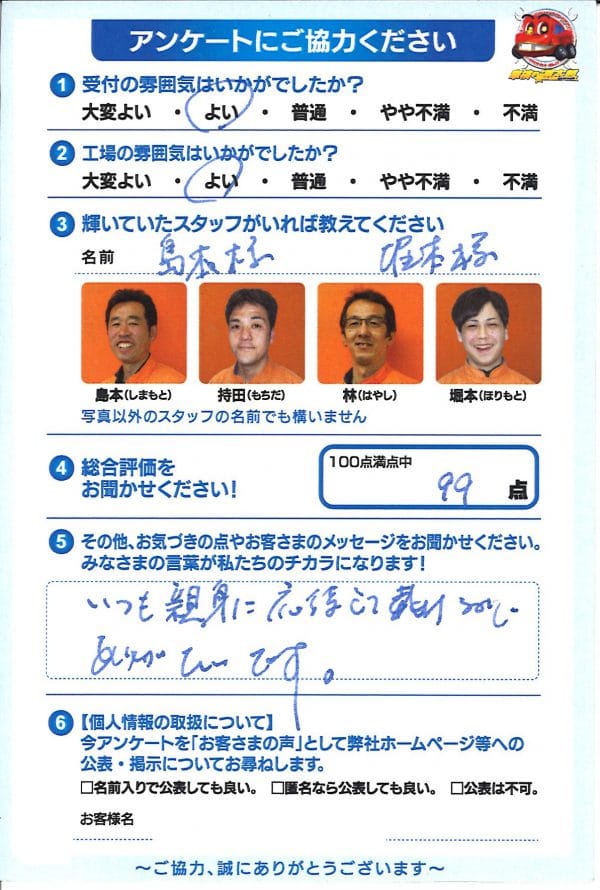 アンケートにご協力ください
1 受付の雰囲気はいかがでしたか?
大変よい ・ よい ・ 普通 ・ やや不満 ・ 不満
2 工場の雰囲気はいかがでしたか?
大変よい ・ よい ・ 普通 ・ やや不満 ・ 不満
3 輝いていたスタッフがいれば教えてください
名前 島本様 堀本様
島本(しまもと) 持田(もちだ) 林(はやし) 堀本(ほりもと)
写真以外のスタッフの名前でも構いません
4 総合評価を
お聞かせください!
100点満点中
99 点
5 その他、お気づきの点やお客さまのメッセージをお聞かせください。
みなさまの言葉が私たちのチカラになります!
いつも親身に応待して戴け
ありがたいです。
6 【個人情報の取扱について】
今アンケートを「お客さまの声」として弊社ホームページ等への
公表・掲示についてお尋ねします。
□名前入りで公表しても良い。 □匿名なら公表しても良い。 □公表は不可。
お客様名
~ご協力、誠にありがとうございます~